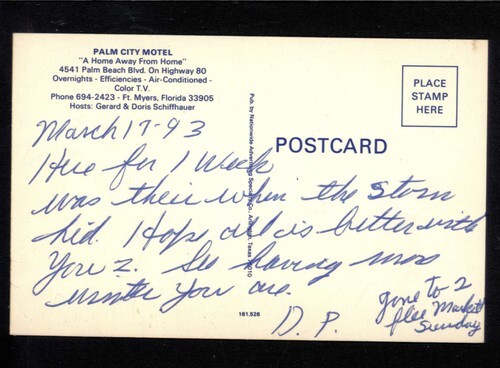 PALM CITY MOTEL
"A Home Away From Home"
4541 Palm Beach Blvd. On Highway 80
Overnights - Efficiencies - Air-Conditioned -
Color T.V.
Phone 694-2423 - Ft. Myers, Florida 33905
Hosts: Gerard & Doris Schiffhauer
PLACE
STAMP
HERE
POSTCARD
Pub. by Nationwide Advertising Specialty Co., Arlington, Texas 76010
March 17-93
Here for 1 Week
was their when the storm
hid. Hope all is better with
You 2. See having more
winter You are.
D. P.
gone to 2
flee Markett
Sunday
181,528